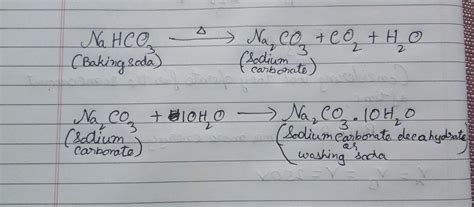 NaHCO₃ —Δ→ Na₂CO₃ + CO₂ + H₂O
(Baking soda) (Sodium carborate)
Na₂CO₃ + 10H₂O → Na₂CO₃ . 10H₂O
(Sodium carborate) (Sodium carborate decahydrate
or
washing soda)